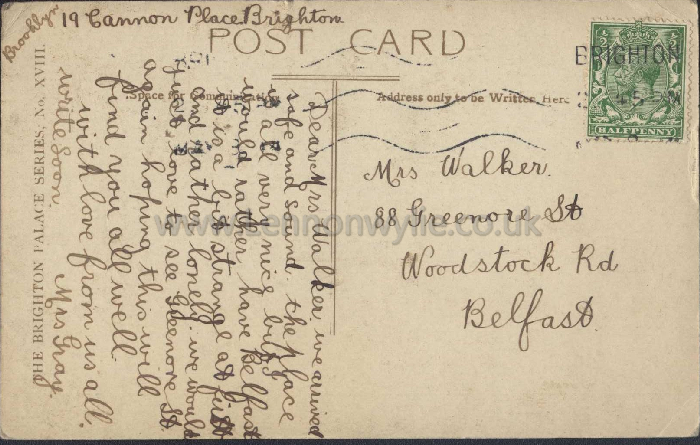 Brooklyn
19 Cannon Place Brighton
POST CARD
BRIGHTON
HALFPENNY
Space for Communication
Address only to be Written Here
THE BRIGHTON PALACE SERIES, No. XVIII.
Dear Mrs Walker. we arrived
safe and sound. the place
is all very nice but
would rather have Belfast
it is a bit strange at first
and rather lonely. we would
just love to see Greenore St
again hoping this will
find you all well.
with love from us all.
write soon
Mrs Gray.
Mrs Walker.
88 Greenore St
Woodstock Rd
Belfast.
www.Lennonwylie.co.uk